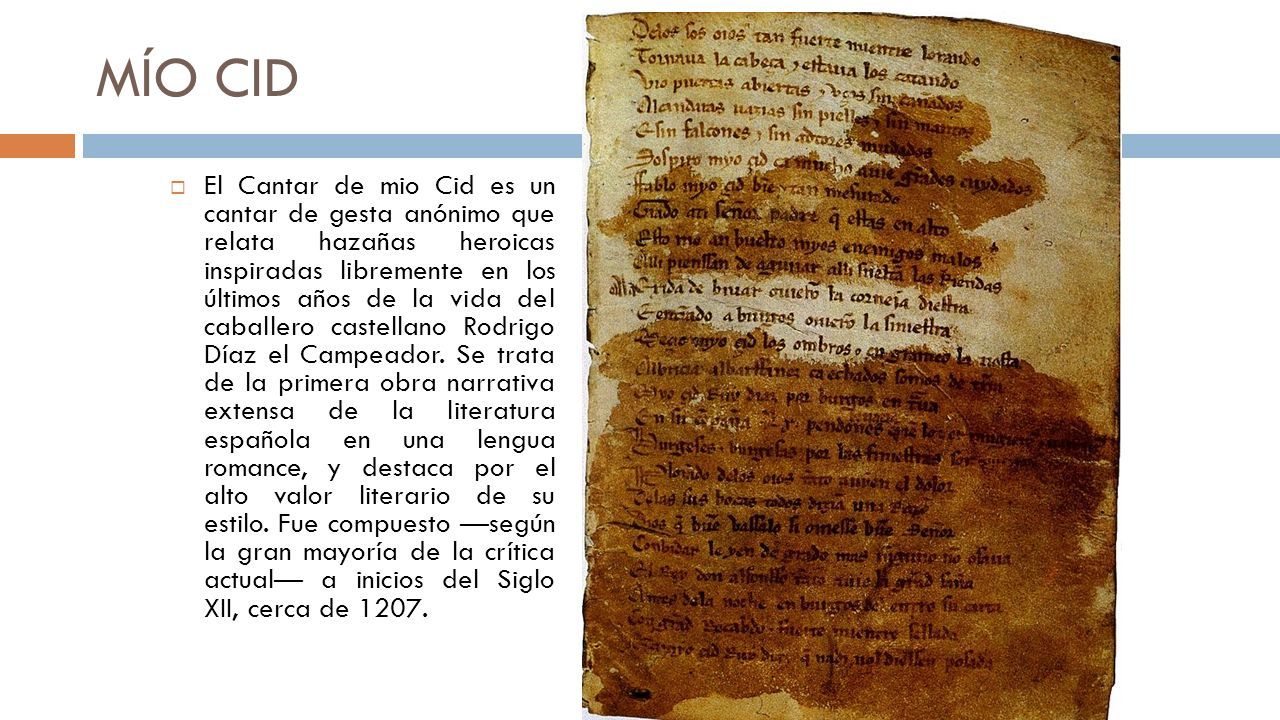 MÍO CID
El Cantar de mio Cid es un
cantar de gesta anónimo que
relata hazañas heroicas
inspiradas libremente en los
últimos años de la vida del
caballero castellano Rodrigo
Díaz el Campeador. Se trata
de la primera obra narrativa
extensa de la literatura
española en una lengua
romance, y destaca por el
alto valor literario de su
estilo. Fue compuesto —según
la gran mayoría de la crítica
actual— a inicios del Siglo
XII, cerca de 1207.
Delos sos oios tan fuerte mientre lorando
Tornaua la cabeça y estaua los catando
Vio puertas abiertas y vços sin cañados
Alcandaras uazias sin pielles y sin mantos
E sin falcones y sin adtores mudados
Sospiro myo çid ca mucho auie grãdes cuydados
Fablo myo çid bien y tan mesurado
Grado ati señor padre q̃ estas en alto
Esto me an buelto myos enemigos malos
Alli pienssan de aguiiar alli sueltã las Riendas
de biuar ouierõ la corneja diestra
a burgos ouierõ la siniestra
myo çid los ombros
albarffanez ca echados somos de tr̃ra
Myo çid Ruy diaz por burgos en
En su pendones
Burgeses burgesas por las finiestras
Plorãdo delos oios tãto auyen el dolor
Delas sus bocas todos dizia una
Dios q̃ buẽ vassalo si ouiesse buẽ Señor
Conbidar le yen de grado mas ninguno no osaua
El Rey don alfonsso tãto auie la grãd saña
Antes dela noche en burgos del entro su carta
Con grãd Recabdo fuerte mientre sellada
çid Ruy diaz q̃ nadi nol diessen posada